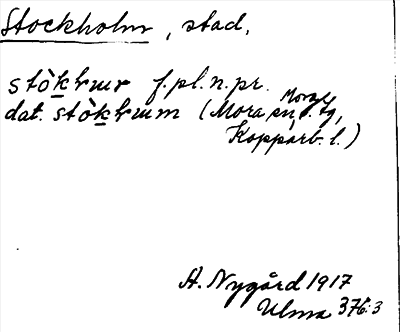 Stockholm, stad.
stòkrur f. pl. n. pr.
dat. stòkrum (Mora sn, Mora tg,
Kopparb. l.)
A. Nygård 1917
Ulma 376:3